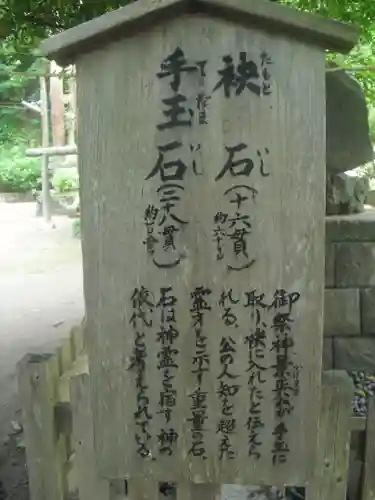 袂石（十六貫
約六十㎏）
手玉石（二八貫
御祭神景政公が手玉に
取り袂に入れたと伝えら
れる、公の人知を超えた
霊力を示す重量の石。
石は神霊を宿す神の
依代と考えられている。